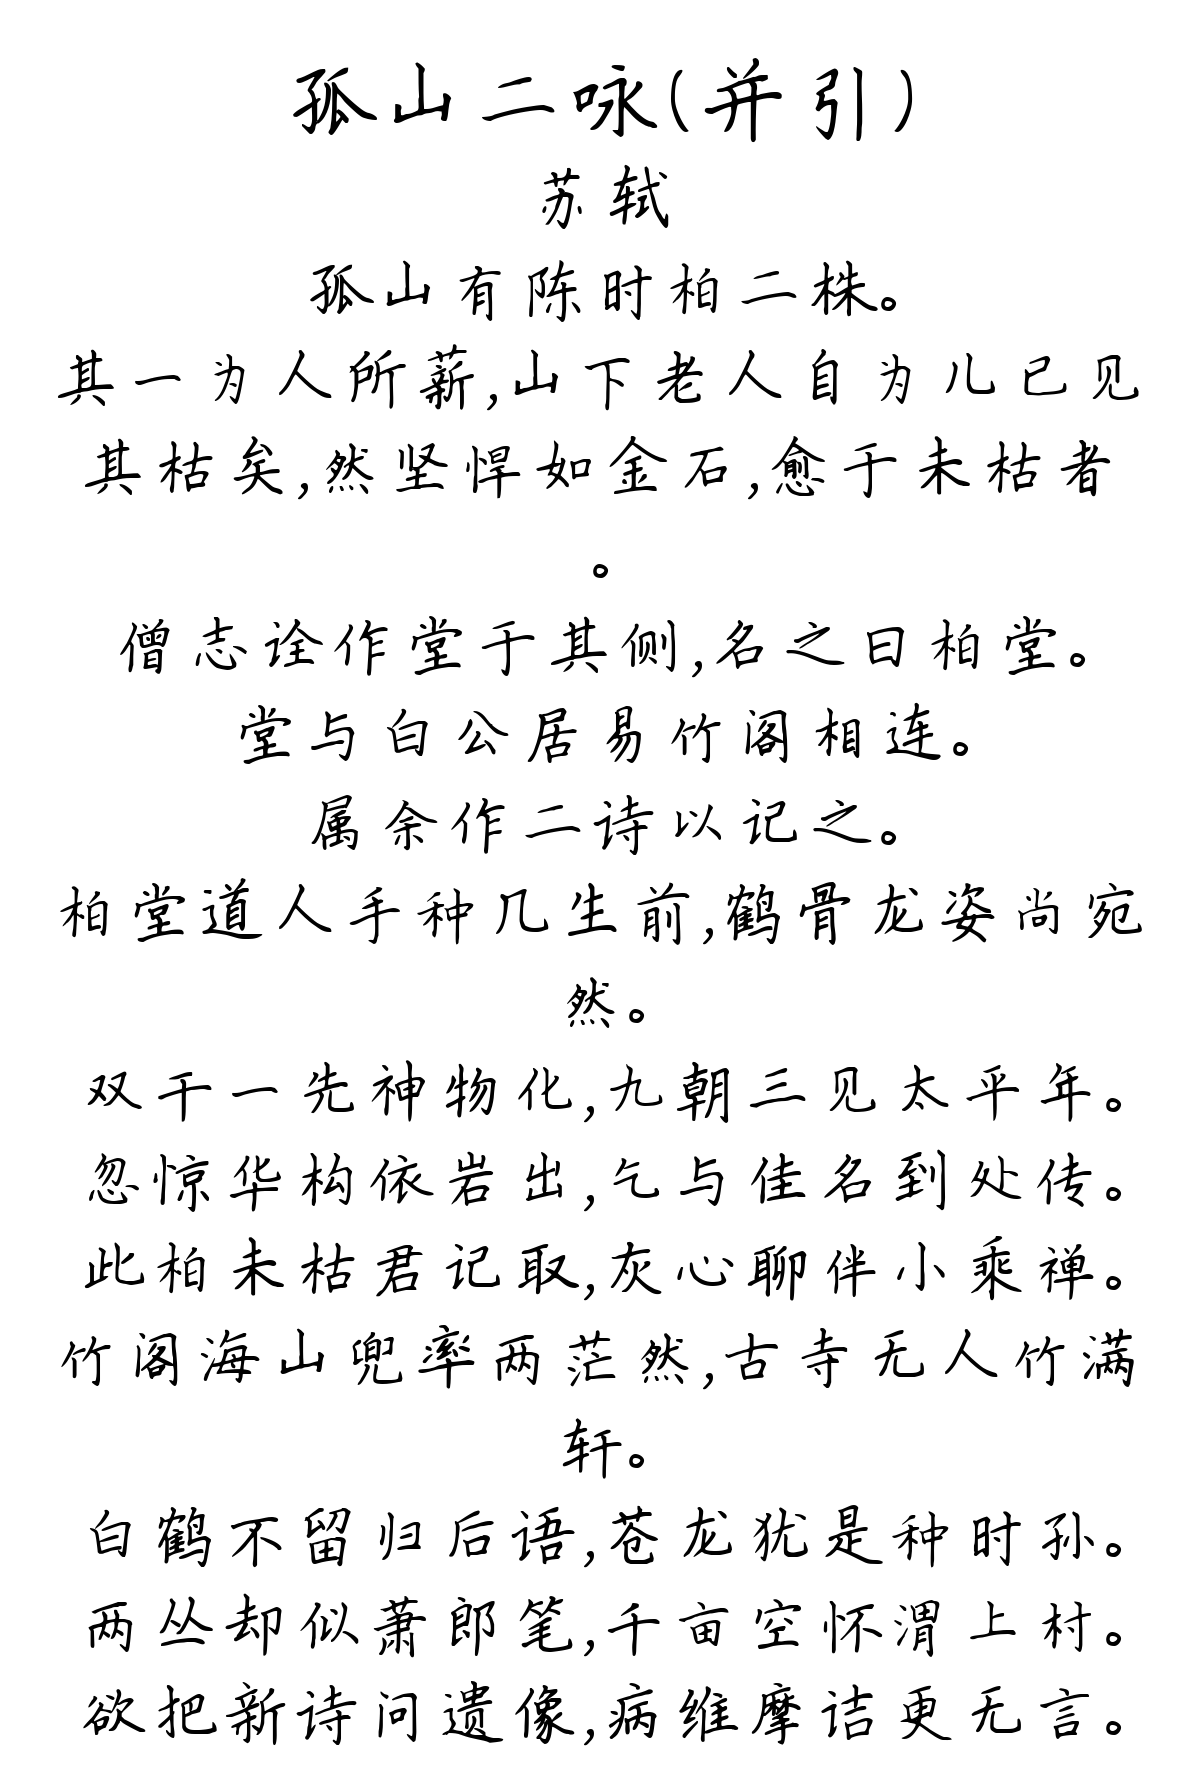 孤山二咏(并引)
苏轼
孤山有陈时柏二株。
其一为人所薪,山下老人自为儿已见
其枯矣,然坚悍如金石,愈于未枯者
。
僧志诠作堂于其侧,名之曰柏堂。
堂与白公居易竹阁相连。
属余作二诗以记之。
柏堂道人手种几生前,鹤骨龙姿尚宛
然。
双干一先神物化,九朝三见太平年。
忽惊华构依岩出,乞与佳名到处传。
此柏未枯君记取,灰心聊伴小乘禅。
竹阁海山兜率两茫然,古寺无人竹满
轩。
白鹤不留归后语,苍龙犹是种时孙。
两丛却似萧郎笔,千亩空怀渭上村。
欲把新诗问遗像,病维摩诘更无言。